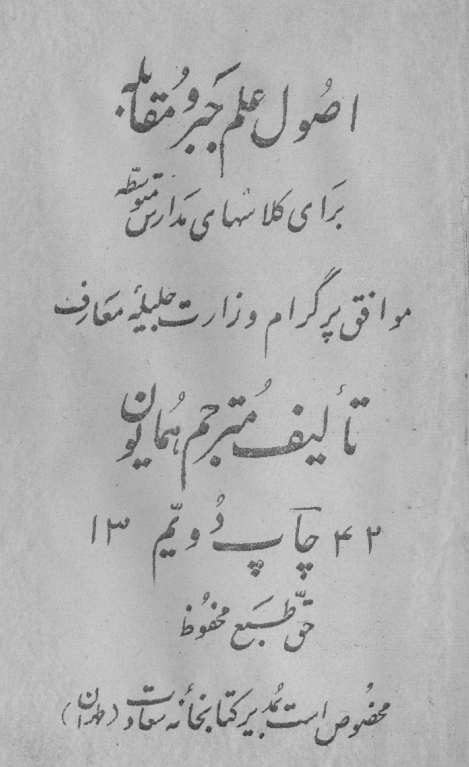 اصُول علم جَبر وُ مقابله
بَرَای کلاسهای مَدَارس متوسّطه
موافق پرگرام وزارت جلیلهٔ معَارف
تألیف مُترجم هُمایون
۴۲ چاپ دُویّم ۱۳
حقّ طَبع محفُوظ
مخصُوص است بُمدیر کتابخانهٔ سعادت (طهران)